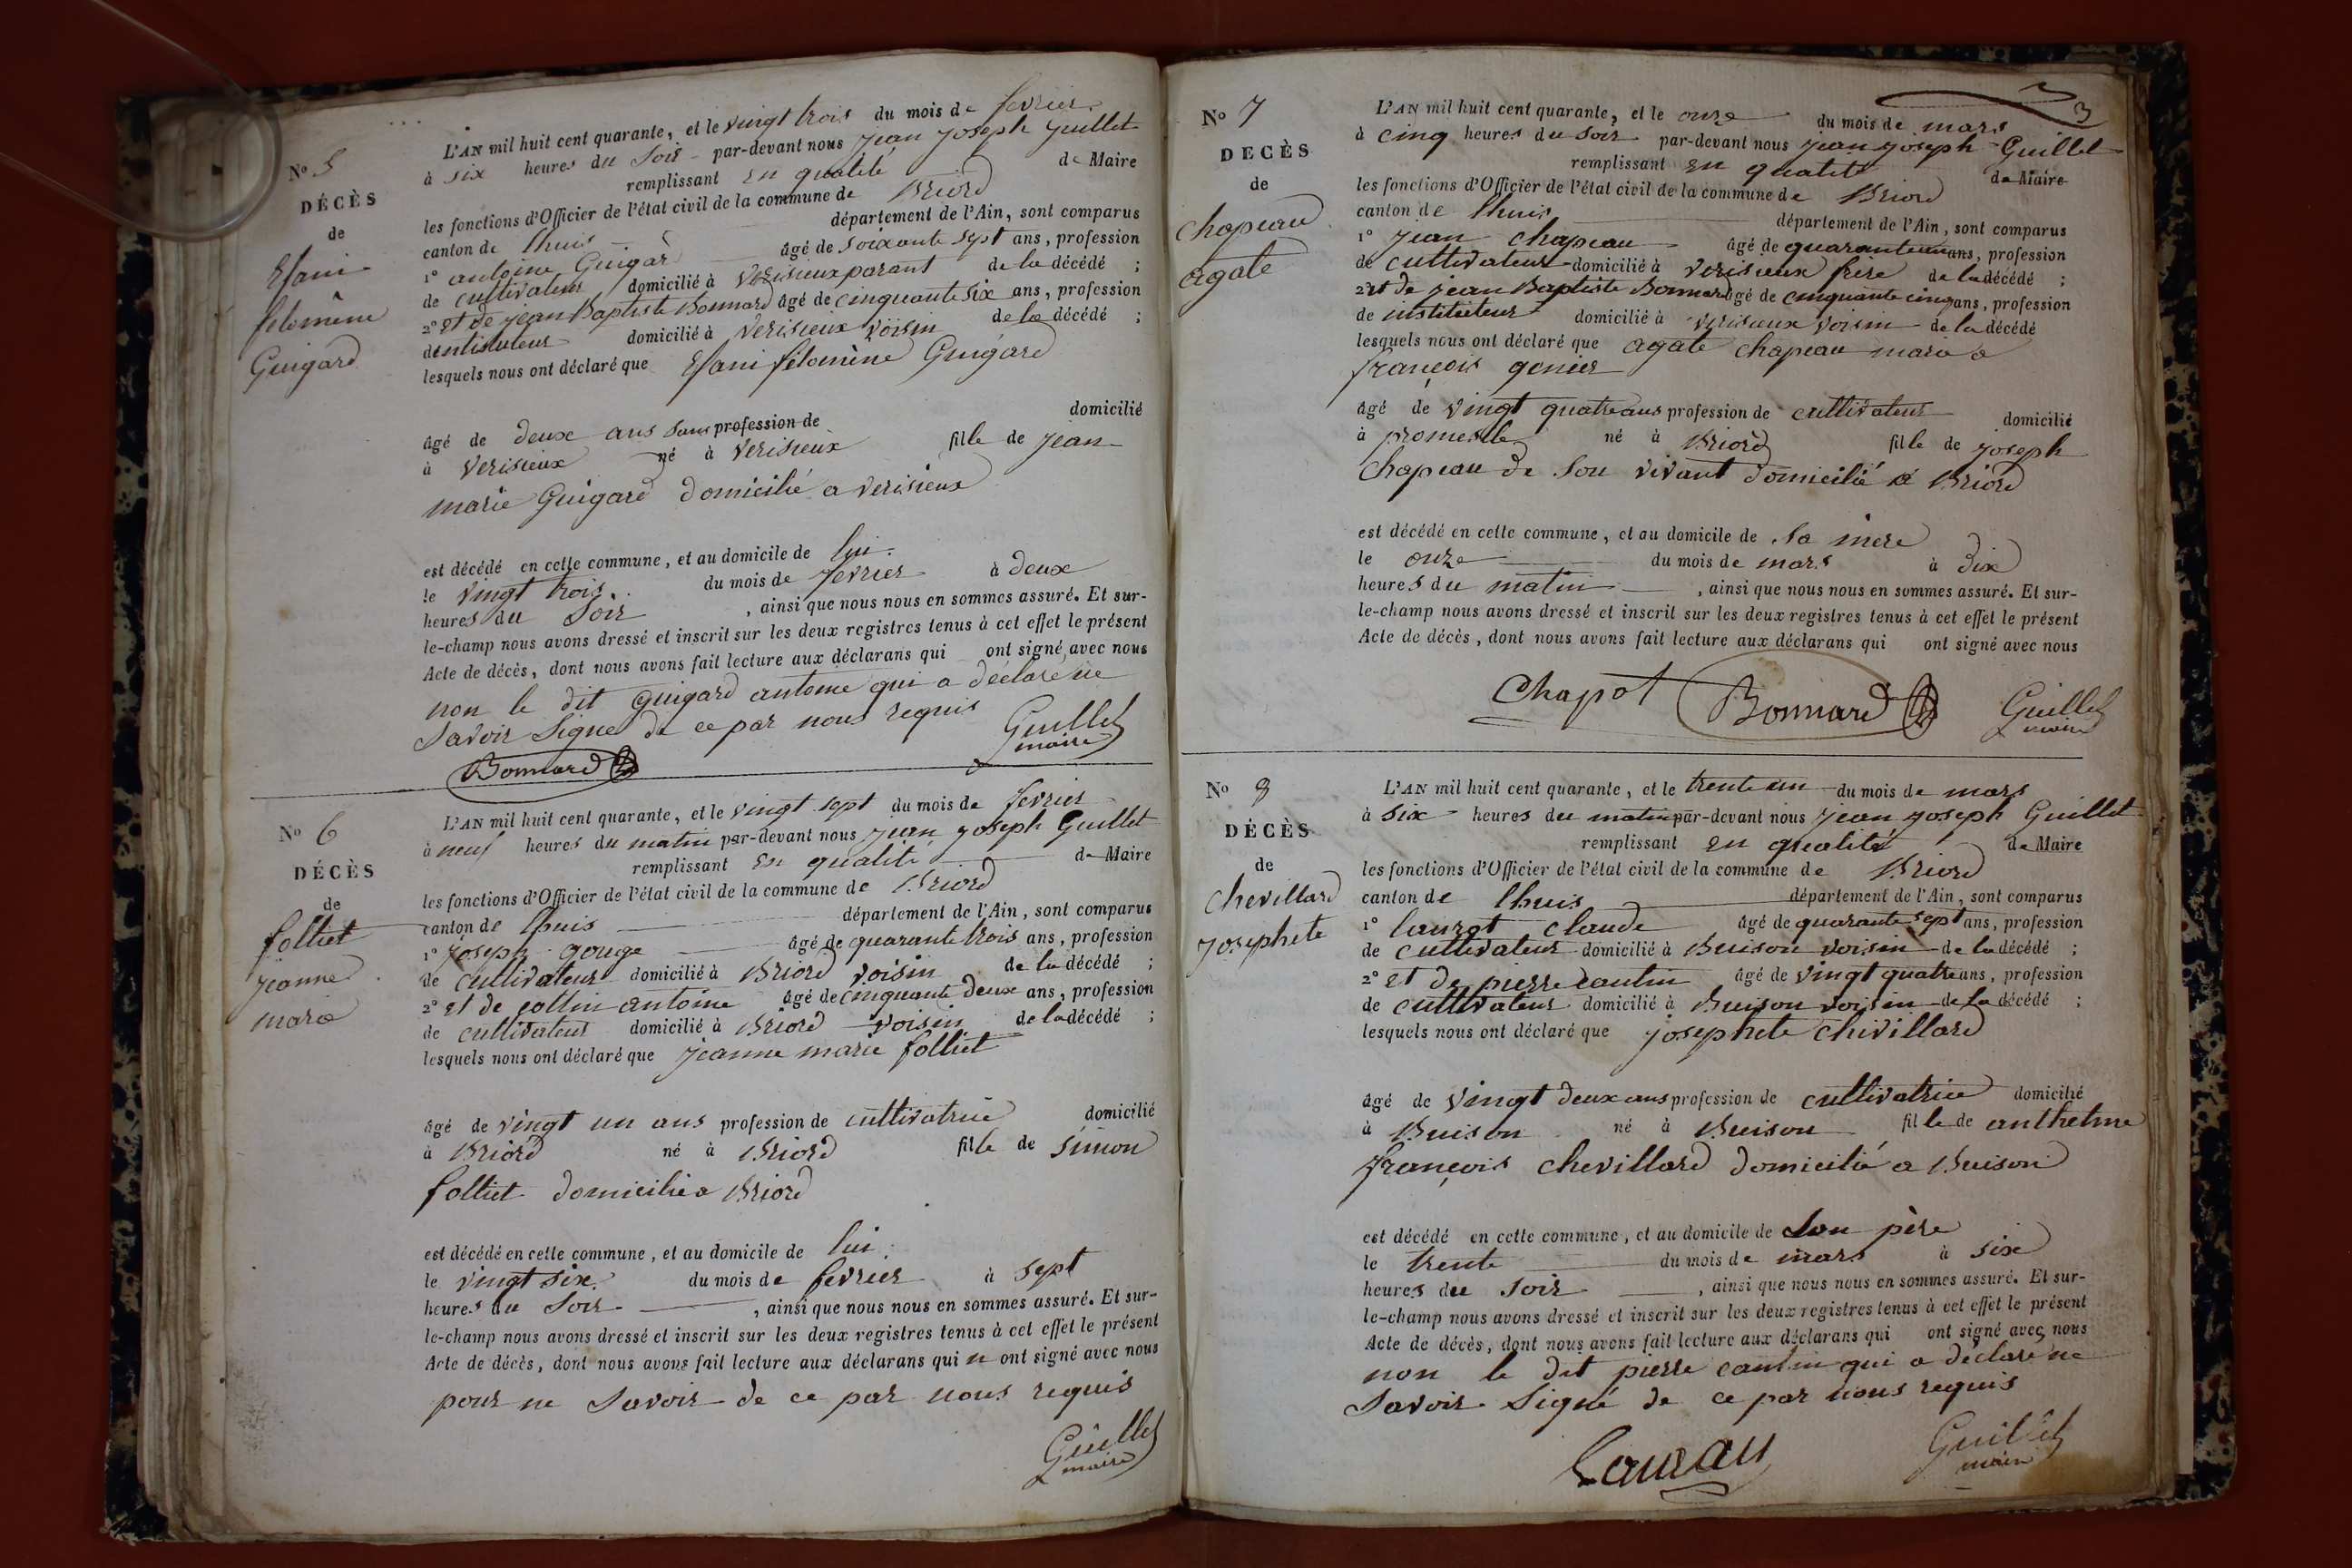 No 5
DÉCÈS
de
Efani
felomène
Guigard
L'AN mil huit cent quarante, et le vingt trois du mois de fevrier
à six heures du soir par-devant nous jean joseph Guillet
remplissant en qualité de Maire
les fonctions d'Officier de l'état civil de la commune de Briord
canton de lhuis département de l'Ain, sont comparus
1° antoine Guigar âgé de soixante sept ans, profession
de cultivateur domicilié à Verisieux parant de la décédé ;
2° et de jean Baptiste Bonnard âgé de cinquante six ans, profession
dintituteur domicilié à Verisieux voisin de la décédé ;
lesquels nous ont déclaré que Efani felomène Guigard
âgé de deux ans sans profession de domicilié
à Verisieux né à Verisieux fille de jean
marie Guigard domicilié a verisieux
est décédé en cette commune, et au domicile de lui
le vingt trois du mois de fevrier à deux
heures du soir , ainsi que nous nous en sommes assuré. Et sur-
le-champ nous avons dressé et inscrit sur les deux registres tenus à cet effet le présent
Acte de décès, dont nous avons fait lecture aux déclarans qui ont signé avec nous
non le dit Guigard antoine qui a déclaré ne
savoir signé de ce par nous requis
Bonnard
Guillet
maire
No 6
DÉCÈS
de
folliet
jeanne
marie
L'AN mil huit cent quarante, et le vingt sept du mois de fevrier
à neuf heures du matin par-devant nous jean joseph Guillet
remplissant en qualité de Maire
les fonctions d'Officier de l'état civil de la commune de Briord
canton de lhuis département de l'Ain, sont comparus
1° joseph gouge âgé de quarante trois ans, profession
de cultivateur domicilié à Briord voisin de la décédé ;
2° et de collin antoine âgé de cinquante deux ans, profession
de cultivateur domicilié à Briord voisin de la décédé ;
lesquels nous ont déclaré que jeanne marie folliet
âgé de vingt un ans profession de cultivatrice domicilié
à Briord né à Briord fille de simon
folliet domicilié a Briord
est décédé en cette commune, et au domicile de lui
le vingt six du mois de fevrier à sept
heures du soir , ainsi que nous nous en sommes assuré. Et sur-
le-champ nous avons dressé et inscrit sur les deux registres tenus à cet effet le présent
Acte de décès, dont nous avons fait lecture aux déclarans qui n ont signé avec nous
pour ne savoir de ce par nous requis
Guillet
maire
3
No 7
DECÈS
de
Chapeau
agate
L'AN mil huit cent quarante, et le onze du mois de mars
à cinq heures du soir par-devant nous jean joseph Guillet
remplissant en qualité de Maire
les fonctions d'Officier de l'état civil de la commune de Briord
canton de lhuis département de l'Ain, sont comparus
1° jean chapeau âgé de quarante un ans, profession
de cultivateur domicilié à verisieux frère de la décédé ;
2° et de jean Baptiste Bonnard âgé de cinquante cinq ans, profession
de instituteur domicilié à verisieux voisin de la décédé
lesquels nous ont déclaré que agate chapeau marié a
françois genier
âgé de vingt quatre ans profession de cultivateur domicilié
à né à Briord fille de joseph
Chapeau de son vivant domicilié a Briord
est décédé en cette commune, et au domicile de sa mère
le onze du mois de mars à dix
heures du matin , ainsi que nous nous en sommes assuré. Et sur-
le-champ nous avons dressé et inscrit sur les deux registres tenus à cet effet le présent
Acte de décès, dont nous avons fait lecture aux déclarans qui ont signé avec nous
Chapot
Bonnard
Guillet
maire
No 8
DÉCÈS
de
Chevillard
josephete
L'AN mil huit cent quarante, et le trente un du mois de mars
à six heures du matin par-devant nous jean joseph Guillet
remplissant en qualité de Maire
les fonctions d'Officier de l'état civil de la commune de Briord
canton de lhuis département de l'Ain, sont comparus
1° laurat claude âgé de quarante sept ans, profession
de cultivateur domicilié à Buison voisin de la décédé ;
2° et de pierre cantin âgé de vingt quatre ans, profession
de cultivateur domicilié à Buison voisin de la décédé ;
lesquels nous ont déclaré que josephete chivillard
âgé de vingt deux ans profession de cultivatrice domicilié
à Buison né à Buison fille de anthelme
françois chevillard domicilié a Buison
est décédé en cette commune, et au domicile de son père
le trente du mois de mars à six
heures du soir , ainsi que nous nous en sommes assuré. Et sur-
le-champ nous avons dressé et inscrit sur les deux registres tenus à cet effet le présent
Acte de décès, dont nous avons fait lecture aux déclarans qui ont signé avec nous
non le dit pierre cantin qui a déclaré ne
savoir signé de ce par nous requis
Guillet
maire